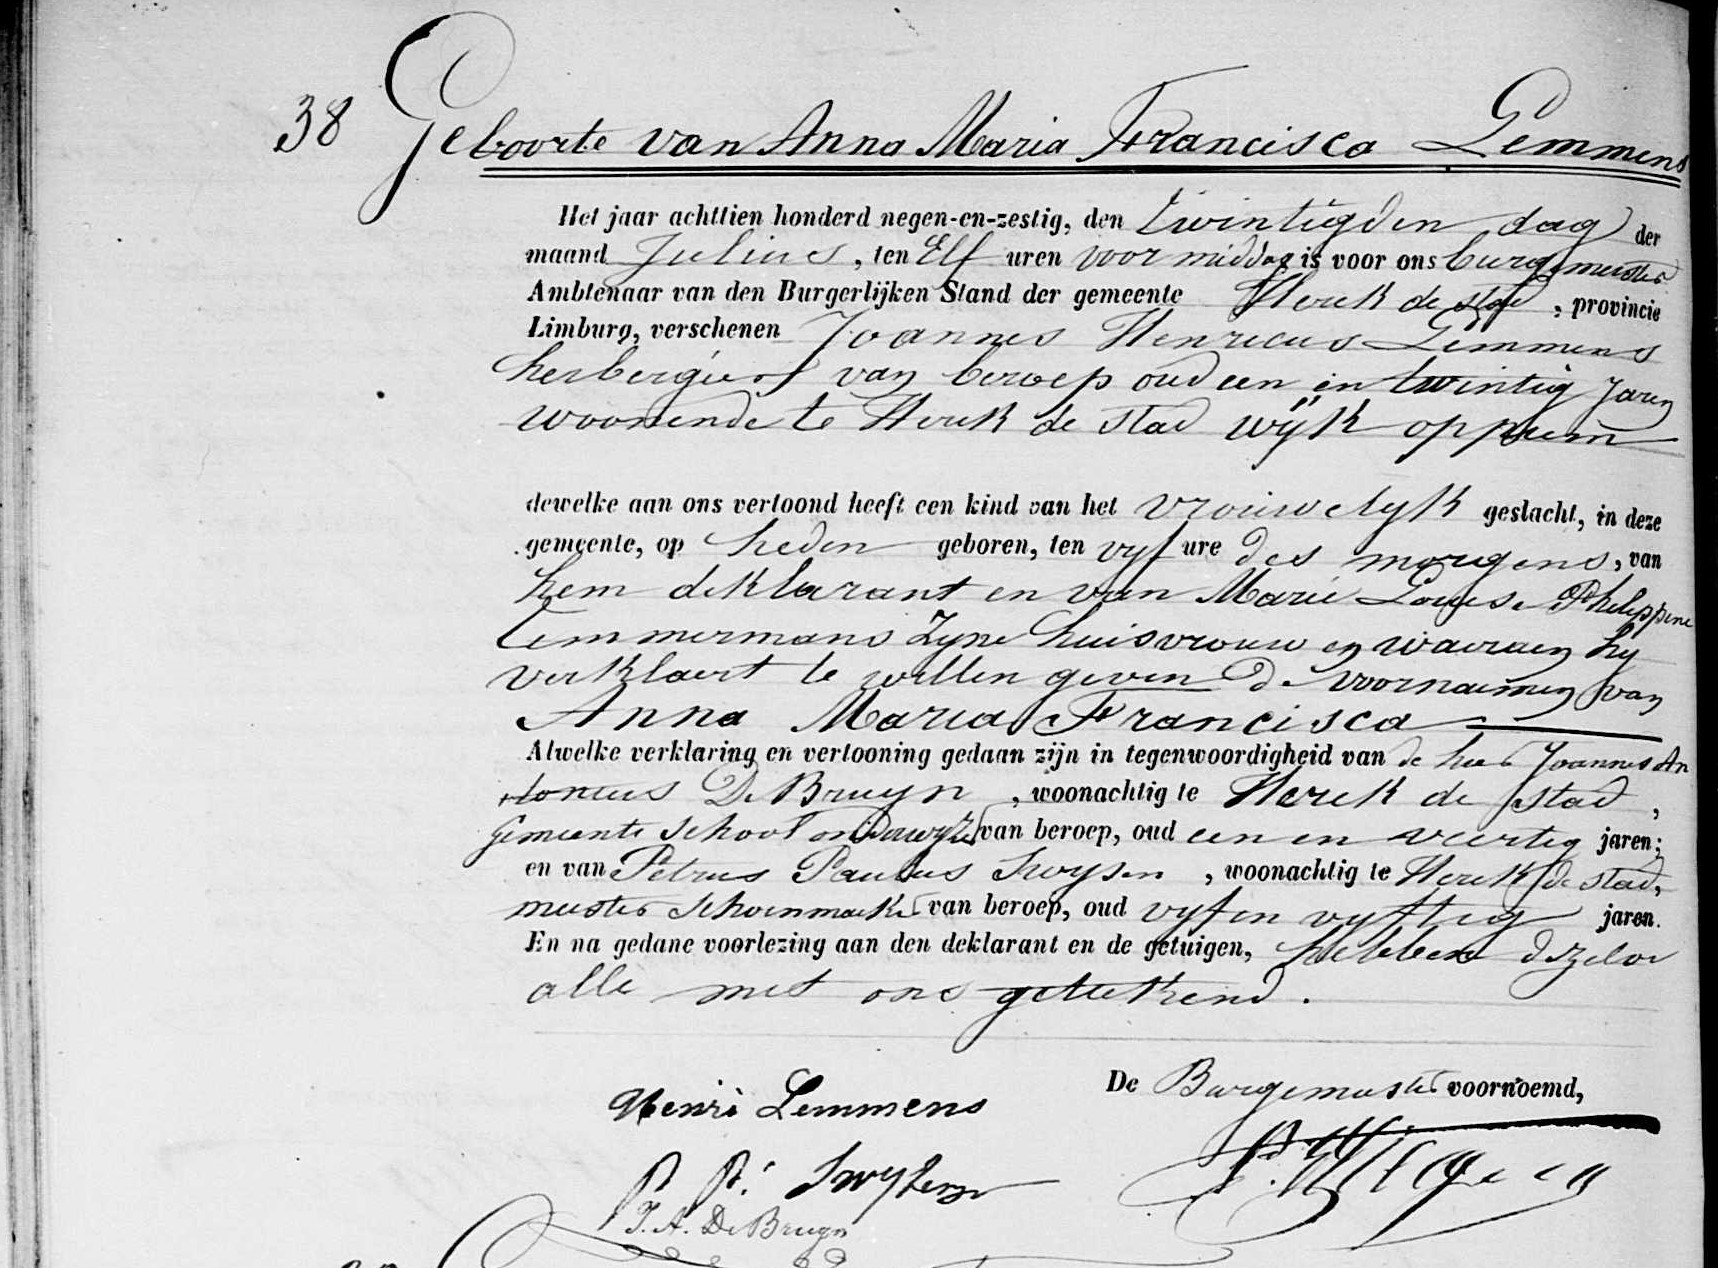 38 Geboorte van Anna Maria Francisca Lemmens
Het jaar achttien honderd negen-en-zestig, den twintigden dag der
maand Julius, ten Elf uren voormiddag is voor ons burgemeester
Ambtenaar van den Burgerlijken Stand der gemeente Herck de stad, provincie
Limburg, verschenen Joannes Henricus Lemmens
herbergier van beroep oud een en twintig jaren
woonende te Herck de stad wÿk oppum
dewelke aan ons vertoond heeft een kind van het vrouwelyk geslacht, in deze
gemeente, op heden geboren, ten vyf ure des morgens, van
hem deklarant en van Marie Louise Philippine
Timmermans Zyne huisvrouw en waeraen hy
verklaert te willen geven de voornaemen van
Anna Maria Francisca
Alwelke verklaring en vertooning gedaan zijn in tegenwoordigheid van de heer Joannes An
tonius De Bruyn, woonachtig te Herck de stad,
gemeente school onderwyzer van beroep, oud een en veertig jaren;
en van Petrus Paulus Swysen, woonachtig te Herck de stad,
meester schoenmaker van beroep, oud vyf en vyftig jaren.
En na gedane voorlezing aan den deklarant en de getuigen, hebben dezelve
alle met ons geteekend.
De Burgemeester voornoemd,
Henri Lemmens
P. P. Swysen
J. A. De Bruyn